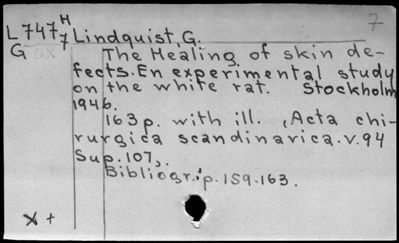 7
L747 H 7 Lindquist, G.
G The Healing of skin de-
fects. En experimental study
on the white rat. Stockholm
1946.
163 p. with ill. (Acta chi-
rurgica scandinavica. v. 94
Sup. 107).
Bibliogr.: p. 159-163.
x +